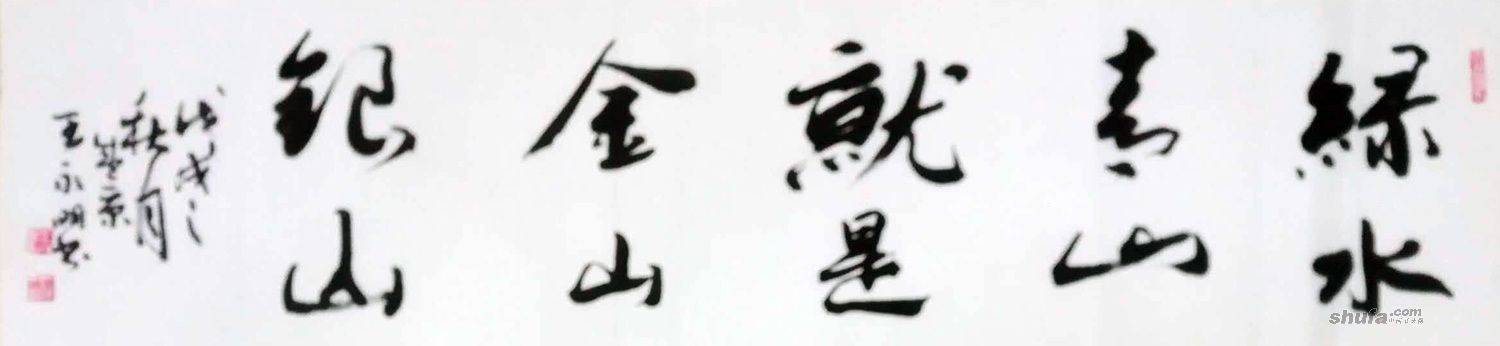 緑水
青山
就是
金山
銀山
戊戌之
秋月
王永明书
shufa.com